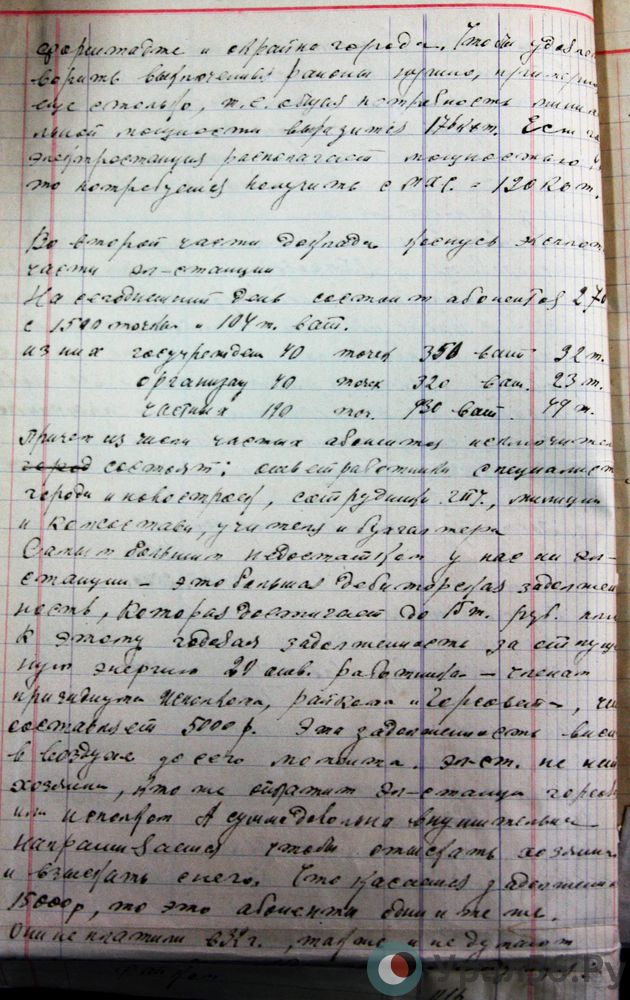 и окраине города. Чтобы удовле
ворить выключенные районы нужно, пример
еще столько, т.е. общая потребность минима
льной мощности выразится 176 квт. Если
электростанция располагает мощностью
то потребуется получить с = 120 квт.
Во второй части доклада коснусь эксплоат
части эл-станции
На сегодняшний день состоит абонентов 270
с 1500 точками и 104 т. ват.
из них госучрежден 40 точек 350 ватт 32 т.
организац 40 точек 320 ват. 23 т.
частных 190 точ. 930 ватт. 49 т.
причем из числа частных абонентов исключител
город состоят: ответработники специалист
города и новостроек, сотрудники , милиции
и комсостава, учителя и бухгалтера
Самым большим недостатком у нас на эл-
станции - это большая дебиторская задолжен
ность, которая достигает до 15 т. руб. плюс
к этому годовая задолженность за отпуще
ную энергию 20 отв. работникам - членам
призидиума Исполкома, райкома и Горсовета, что
составляет 5000 р. Эта задолженность виси
в воздухе до сего момента. эл-ст. не
хозяина, кто же оплатит эл-станции горсов
или исполком А сумма довольна внушительна
напрашивается чтобы отыскать хозяина
и взыскать с него. Что касается задолженн
15000 р, то это абоненты одни и те же.
Они не платили в 32 г., также и не думают
Урал56.Ру